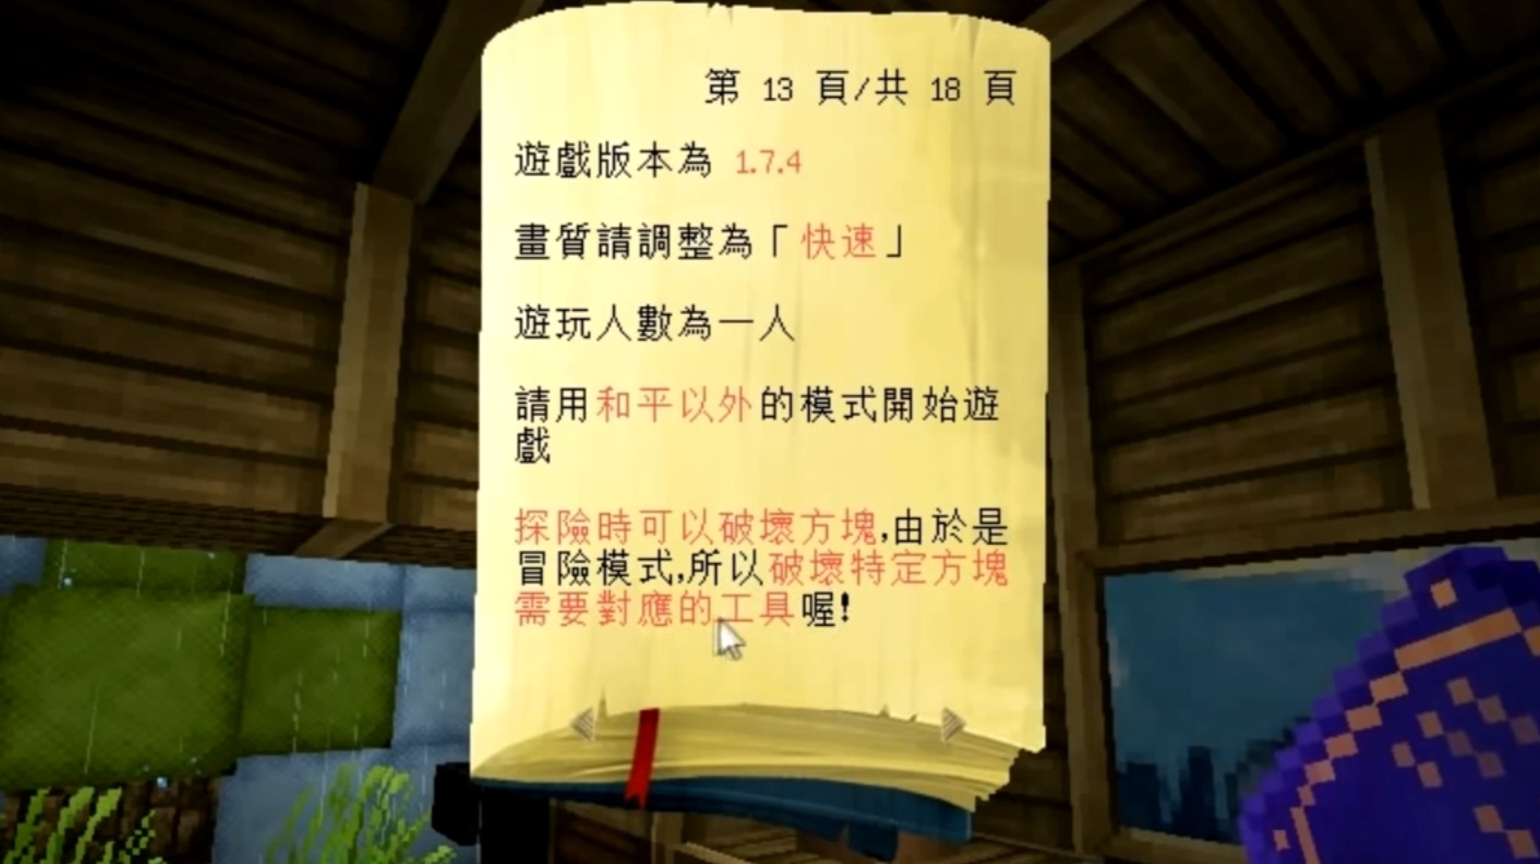 第 13 頁/共 18 頁
遊戲版本為 1.7.4
畫質請調整為「快速」
遊玩人數為一人
請用和平以外的模式開始遊
戲
探險時可以破壞方塊,由於是
冒險模式,所以破壞特定方塊
需要對應的工具喔!